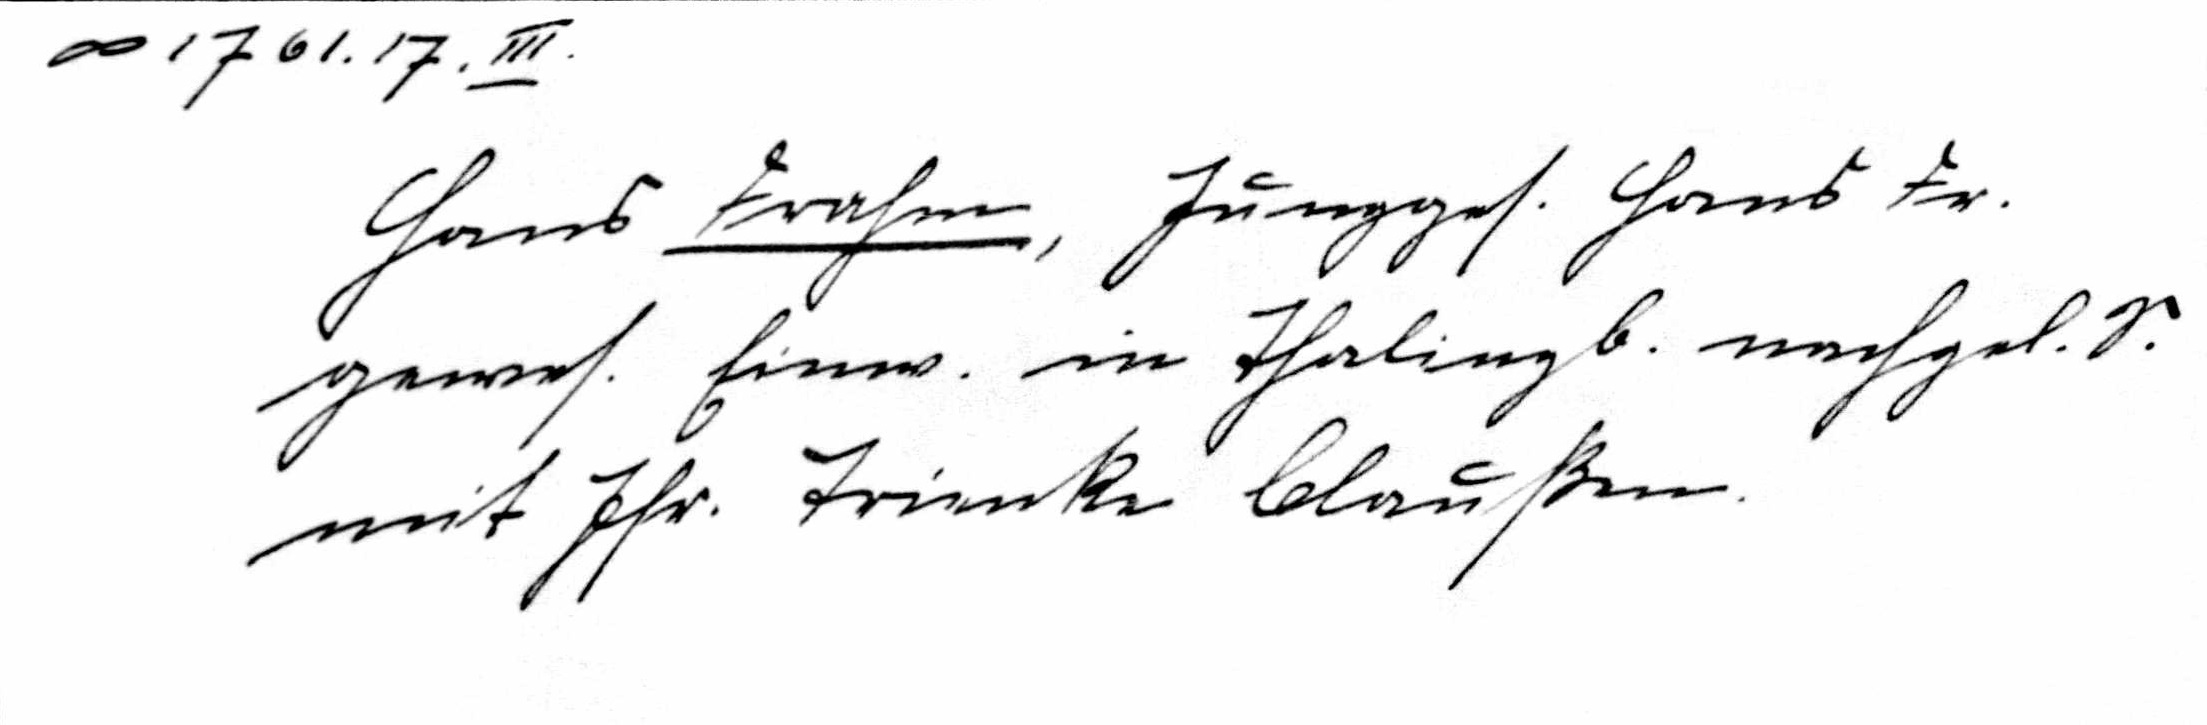 ∞ 1761. 17. III.
Hans Frahm, Jungges. Hans Fr.
gewes. Einw. in Thalingb. nachgel. S.
mit Jfr. Trienke Claußen.